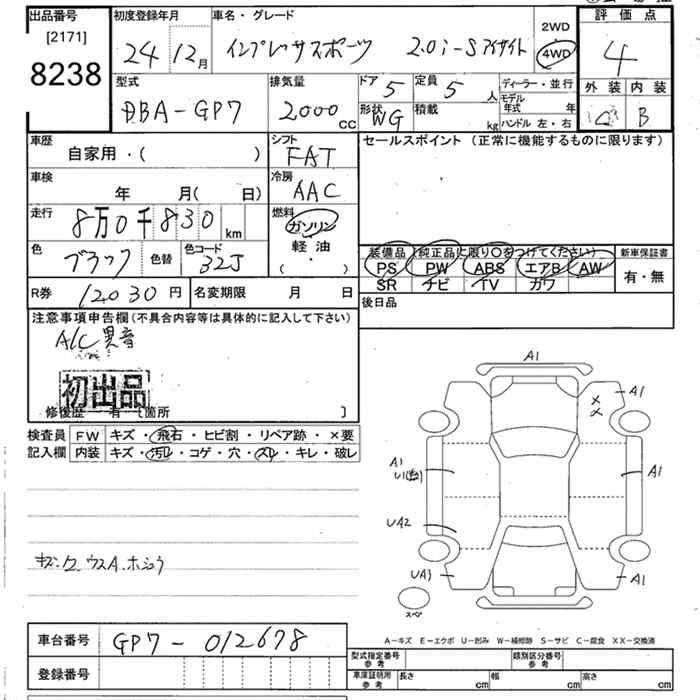 出品番号 初度登録年月 車名・グレード 評価点
[2171] 2WD
8238 24 12月 インプレッサスポーツ 2.0i-Sアイサイト 4WD 4
型式 排気量 ドア 5 定員 5人 ディーラー・並行 外装 内装
DBA-GP7 2000cc 形状 WG 積載 kg モデル年式 年 B
ハンドル 左・右
車歴 シフト セールスポイント (正常に機能するものに限ります)
自家用・( ) FAT
車検 冷房
年 月( 日) AAC
走行 8万0千830km 燃料
ガソリン
色 ブラック 色替 色コード 32J 軽油
( ・ )
装備品 (純正品に限り○をつけてください) 新車保証書
PS PW ABS エアB AW 有・無
SR ナビ TV カワ
R券 12030円 名変期限 月 日 後日品
注意事項申告欄(不具合内容等は具体的に記入して下さい)
A/C異音
初出品
修復歴 有 [箇所 ]
検査員 FW キズ・飛石・ヒビ割・リペア跡・×要
記入欄 内装 キズ・汚レ・コゲ・穴・スレ・キレ・破レ
A1
A1
A1
U1
A1
UA2
UA1
A1
スペア
A-キズ E-エクボ U-凹み W-補修跡 S-サビ C-腐食 XX-交換済
車台番号 GP7-012678
型式指定番号 参考 類別区分番号 参考
登録番号
車庫証明用 参考 長さ cm 幅 cm 高さ cm